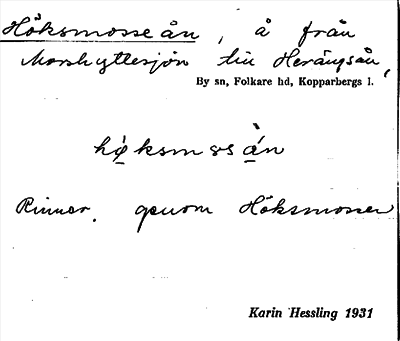 Höksmosseån, å från
Morshyttesjön till Herängsån,
By sn, Folkare hd, Kopparbergs l.
hø̀ksmɷsà̱n
Rinner genom Höksmossen
Karin Hessling 1931